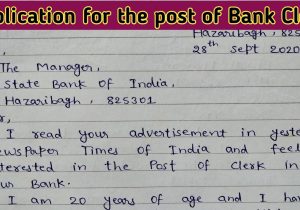 plication for the post of Bank Cl
Hazaribagh, 825
28th Sept 202
The Manager,
State Bank of India,
Hazaribagh, - 825301
I read your advertisement in yeste
ewspaper Times of India and feel
terested in the Post of Clerk in
ur Bank.
I am 20 years of age and I ha